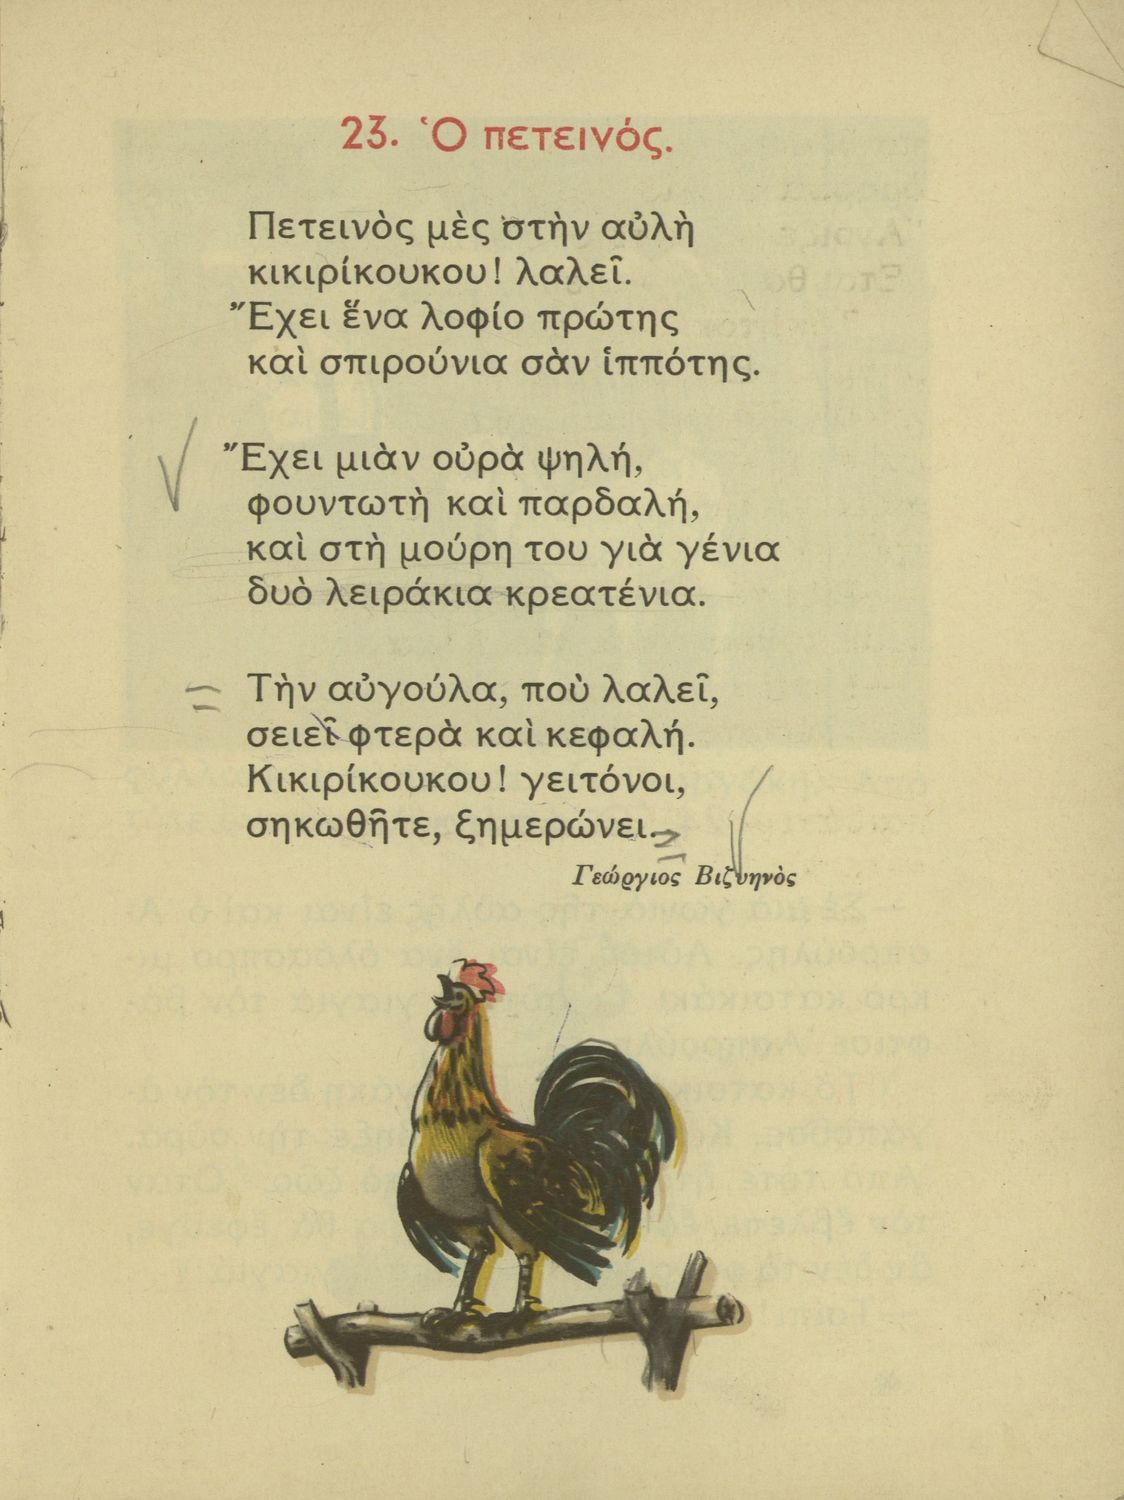 23. Ὁ πετεινός.
Πετεινὸς μὲς στὴν αὐλὴ
κικιρίκουκου! λαλεῖ.
Ἔχει ἕνα λοφίο πρώτης
καὶ σπιρούνια σὰν ἱππότης.
Ἔχει μιὰν οὐρὰ ψηλή,
φουντωτὴ καὶ παρδαλή,
καὶ στὴ μούρη του γιὰ γένια
δυὸ λειράκια κρεατένια.
Τὴν αὐγούλα, ποὺ λαλεῖ,
σειεῖ φτερὰ καὶ κεφαλή.
Κικιρίκουκου! γειτόνοι,
σηκωθῆτε, ξημερώνει.
Γεώργιος Βιζυηνὸς